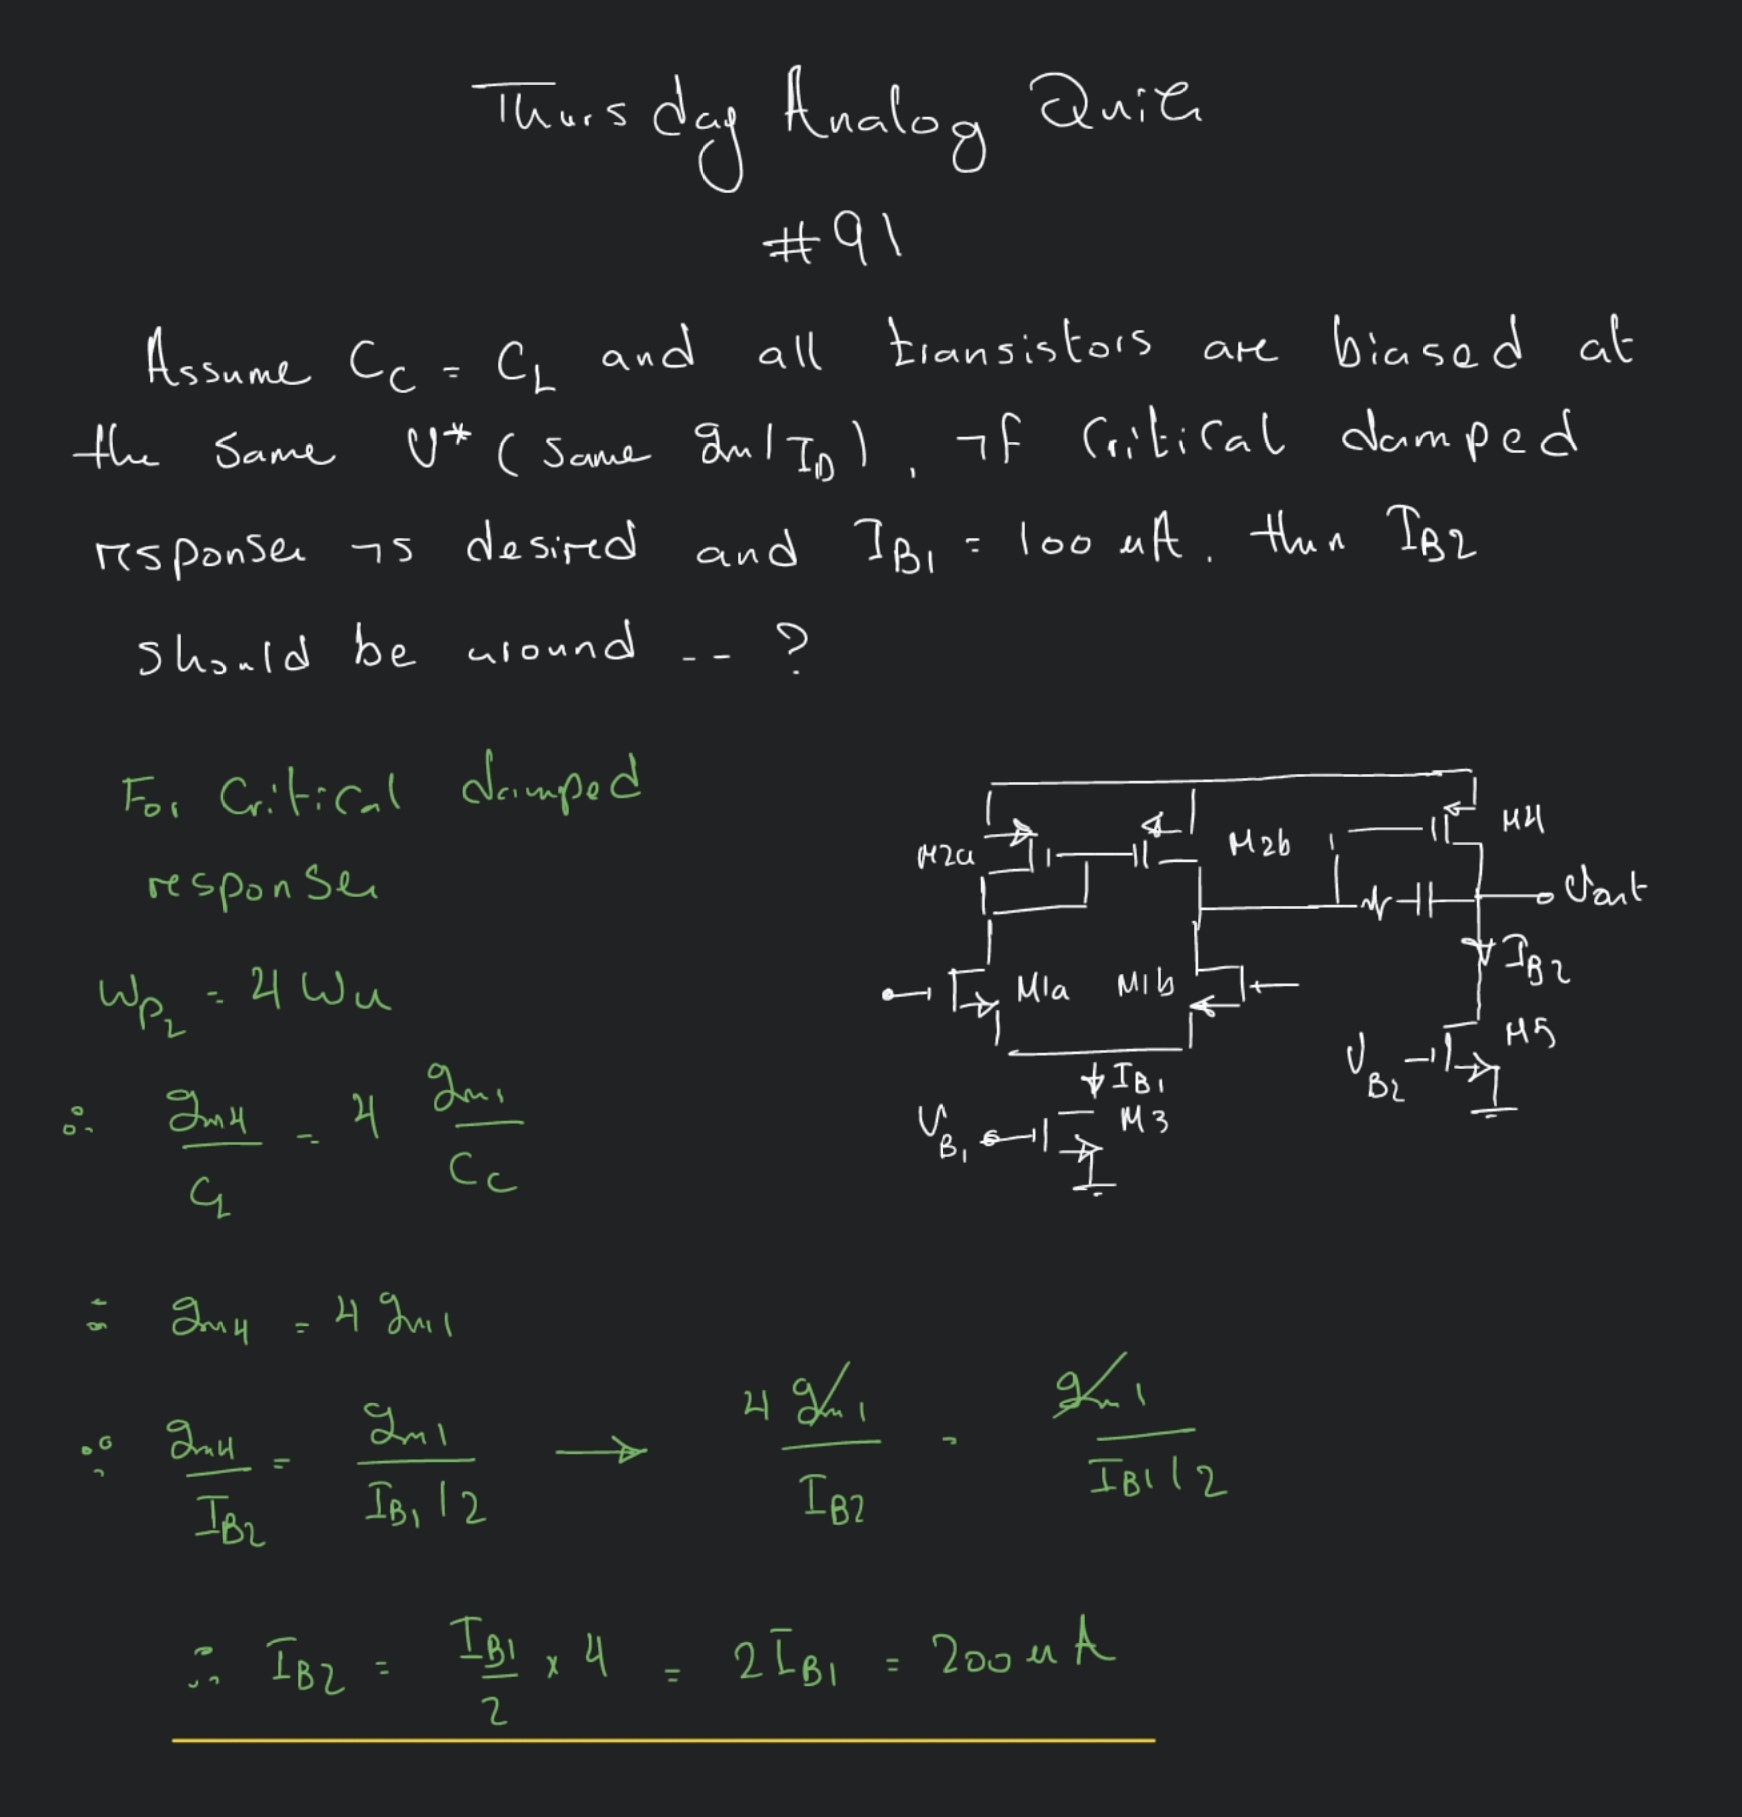 Thursday Analog Quiz
#91
Assume Cc = CL and all transistors are biased at
the same V* (same gm/ID), if Critical damped
response is desired and IB1 = 100 uA. then IB2
should be around -- ?
For Critical damped
response
ωp2 = 4 ωu
∴ gm4/CL = 4 gm1/Cc
∴ gm4 = 4 gm1
∵ gm4/IB2 = gm1/(IB1/2) → 4 gm1/IB2 = gm1/(IB1/2)
∴ IB2 = IB1/2 x 4 = 2IB1 = 200 uA
M2a
M2b
M4
Vout
IB2
M1a
M1b
VB2
M5
IB1
VB1
M3